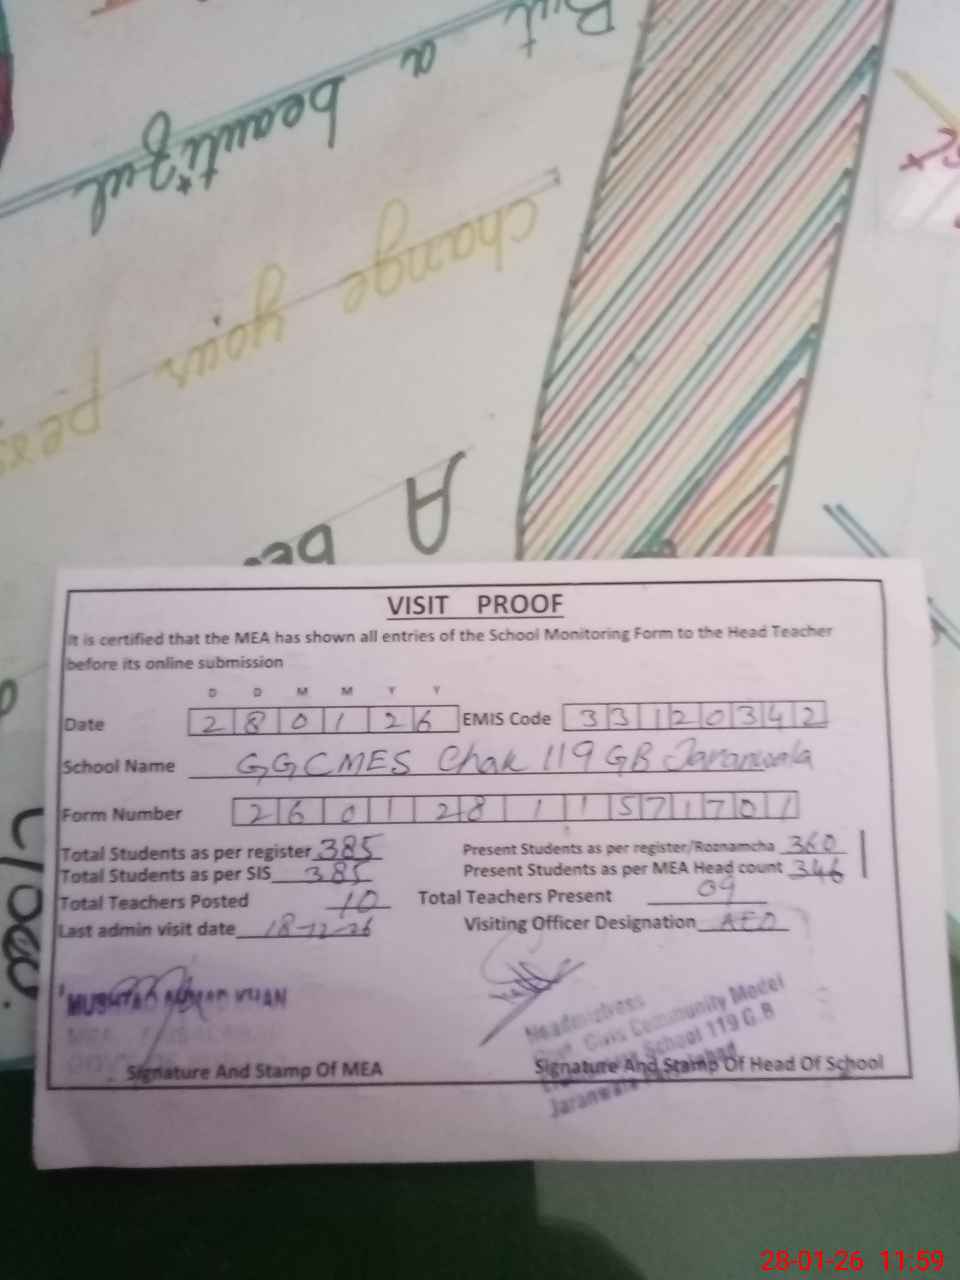 But a
beautiful
change your
A be
VISIT PROOF
It is certified that the MEA has shown all entries of the School Monitoring Form to the Head Teacher
before its online submission
D D M M Y Y
Date 2 8 0 1 2 6 EMIS Code 3 3 1 2 0 3 4 2
School Name GGCMES Chak 119 GB Jaranwala
Form Number 2 6 0 1 2 8 1 1 5 7 1 7 0 1
Total Students as per register 385 Present Students as per register/Roznamcha 360
Total Students as per SIS 385 Present Students as per MEA Head count 346
Total Teachers Posted 10 Total Teachers Present 09
Last admin visit date Visiting Officer Designation AEO
MUSHTAQ AHMAD KHAN
Headmistress
Govt. Civic Community Model
School 119 G.B
Signature And Stamp Of MEA Signature And Stamp Of Head Of School
Jaranwala
28-01-26 11:59